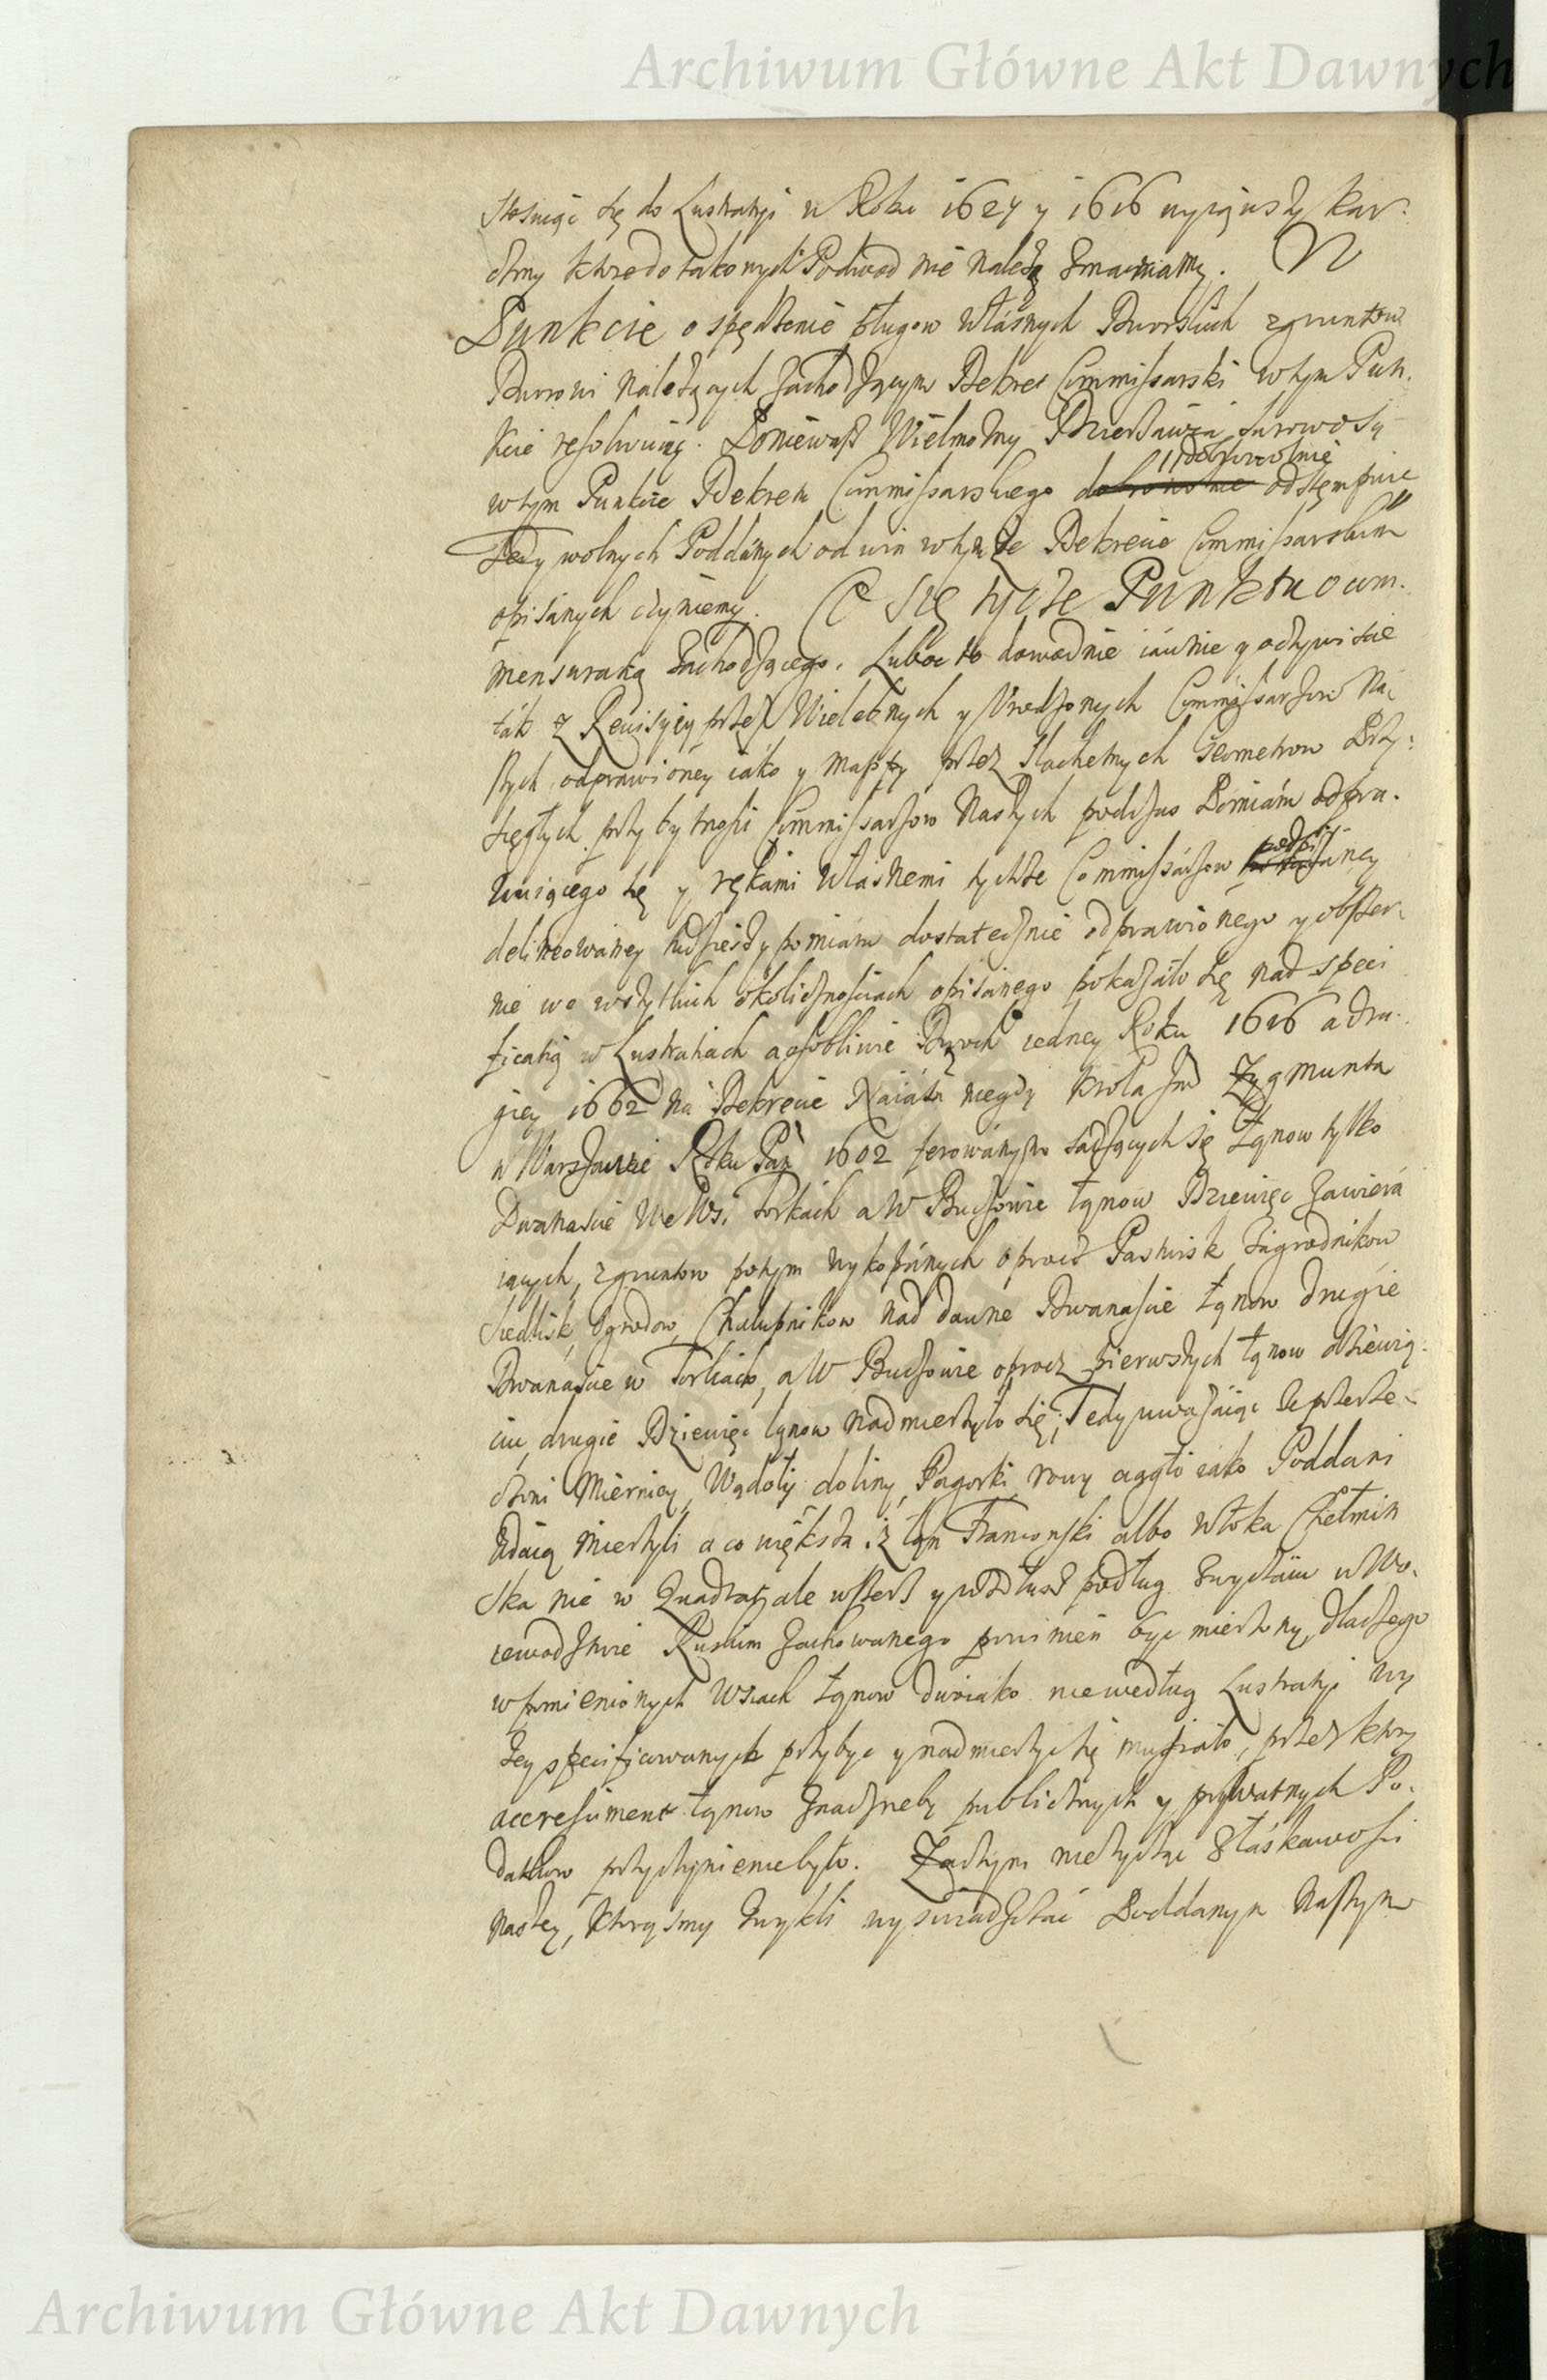 Archiwum Główne Akt Dawnych
Stosuiąc się do Lustratyi w Roku 1627 y 1616 wyiąwszy kar:
czmy ktre do takowych Podwod nie należą zmacniamy. W
Punkcie o spędzenie pługow własnych Dworskich z gruntow
Dworowi należących zachodzącym Dekret Commissarski w tym Pun.
kcie resolwuiąc. Ponieważ Wielmożny Dzierżawca surowosą
w tym Punkcie Dekretu Commissarskiego dobrowolnie odstempuie
Tedy wolnych Poddanych od win w tymże Dekrecie Commissarskim
opisanych czyniemy. Co się tycze Punktu o com.
mensuratią zachodzącego. Luboc to dowodnie iawnie y oczywiscie
tak z Rewizyey przez Wielebnych y Urodzonych Commissarzow Na:
szych odprawioney iako y mappy przez Slachetnych Geometrow Przy:
sięgłych przy bytnosci Commissarzow Naszych podczas Pomiaru odpra.
wuiącego się y rękami własnemi tychże Commissarzow podpisaney
delineowaney tudzieszy pomiaru dostatecznie odprawionego y obszer.
nie we wszytkich okolicznosciach opisanego pokazało się nad speci
ficatią w Lustratiach a osobliwie Dwoch iedney Roku 1616 a dru.
giey 1662 na Dekrecie Naiasn niegdy Krola Jmci Zygmunta
w Warszawie Roku Pań 1602 ferowanym sadzących się Łanow tylko
Dwanascie We Wsi Torkach a W Bucowie łanow Dziewięc zawiera
iących, z gruntow potym wykopanych oprocz Pastwisk Zagrodnikow
Siedlisk, Ogrodow, Chałupnikow nad dawne Dwanascie łanow drugie
Dwanascie w Torkach, a W Bucowie oprocz pierwszych łanow dziewią:
ciu drugie Dziewięc łanow nadmierzyło się, Tedy uwazaiąc ze przerze
czoni Miernicy, Wądoły doliny, Pagorki rowy ciągło iako Poddani
udaią mierzyli a co większa iż łan Franconski albo włoka Chełmin
ska nie w Quadrat ale wszerz y wzdłusz podług zwyczaiu w Wo.
iewodztwie Ruskim zachowanego powinien byc mierzony, dlaczego
w pomienionych Wsiach łanow dwoiako nie według Lustratyi wy
zey specificowanych przybyc y nadmierzyc się musiało, przez ktory
accresciment łanow znaczneby publicznych y prywatnych Po.
datkow przyczynienie było. Zaczym nie życząc z łaskawosci
Naszey, ktorąsmy zwykli wyswiadczac Poddanym Naszym
Archiwum Główne Akt Dawnych